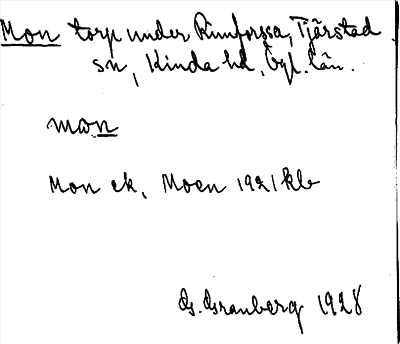 Mon torp under Rimforssa, Tjärstad
sn, Kinda hd, Ögl. län.
mon
Mon ek, Moen 1921 kb
G. Granberg 1928